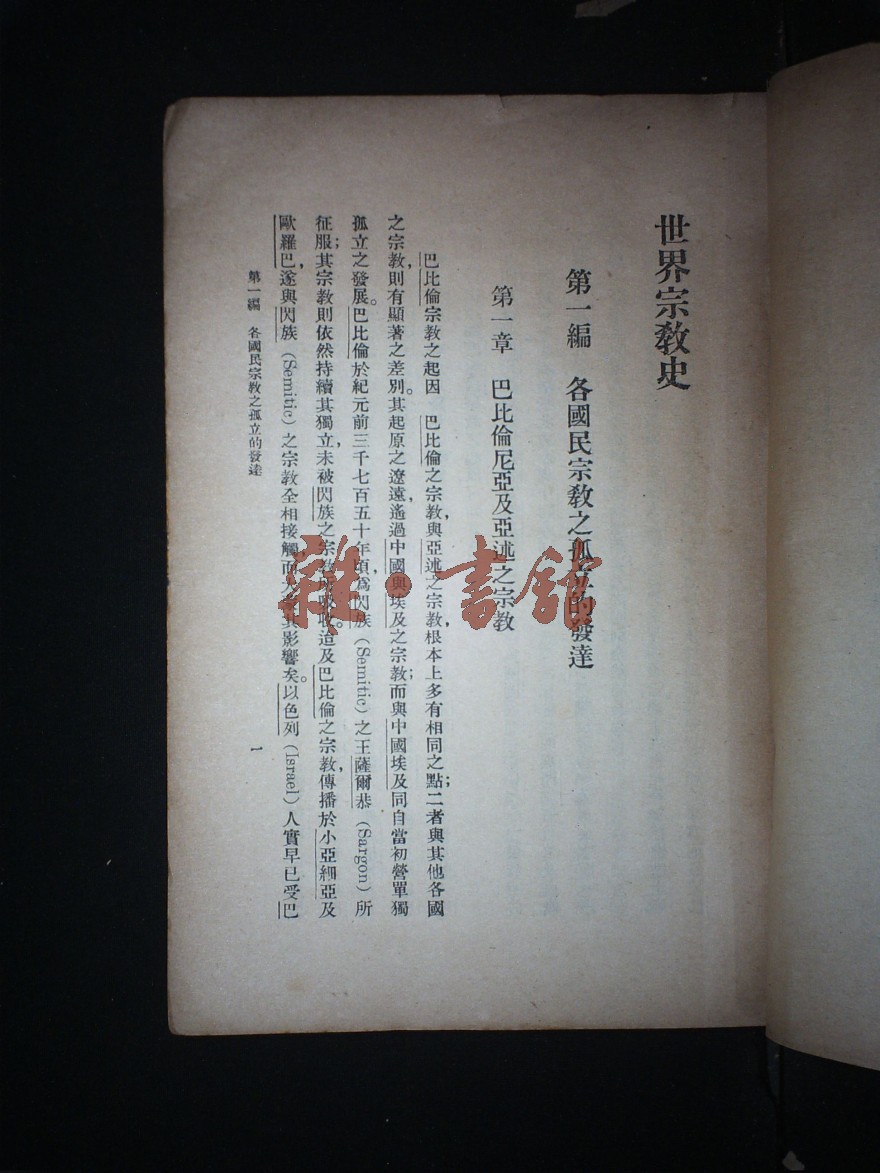 世界宗教史
第一編 各國民宗教之孤立的發達
第一章 巴比倫尼亞及亞述之宗教
巴比倫宗教之起因 巴比倫之宗教與亞述之宗教,根本上多有相同之點;二者與其他各國
之宗教,則有顯著之差別。其起原之遼遠,遙過中國與埃及之宗教;而與中國埃及同自當初營單獨
孤立之發展。巴比倫於紀元前三千七百五十年頃,爲閃族(Semitic)之王薩爾恭(Sargon)所
征服;其宗教則依然持續其獨立,未被閃族之宗教所吸收。迨及巴比倫之宗教,傳播於小亞細亞及
歐羅巴,遂與閃族(Semitic)之宗教全相接觸,而大蒙其影響矣。以色列(Israel)人實早已受巴
第一編 各國民宗教之孤立的發達
一
雜·書館